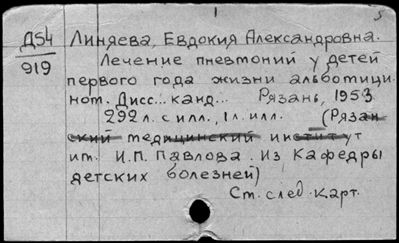 1 5
Д54 Линяева, Евдокия Александровна.
919 Лечение пневмоний у детей
первого года жизни альботици
ном. Дисс. канд... Рязань, 1953
292 л. с илл., 1 л. илл. (Рязан
ский медицинский институт
им. И.П. Павлова. Из Кафедры
детских болезней)
Ст. след. карт.